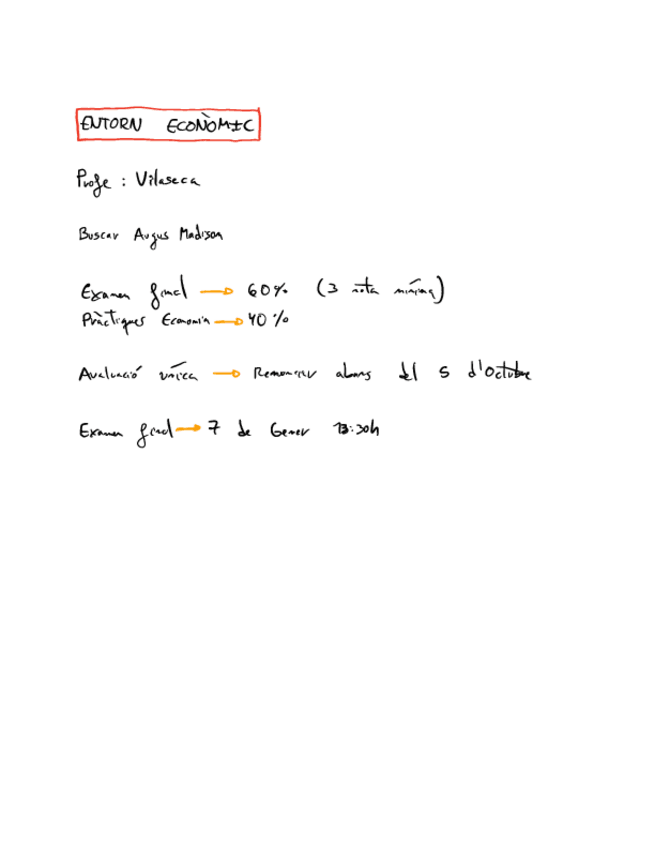 ENTORN ECONÒMIC
Profe : Vilaseca
Buscar Augus Madison
Examen final → 60% (3 nota mínima)
Pràctiques Economia → 40%
Avaluació única → abans del 5 d'Octubre
Examen final → 7 de Gener 13:30h